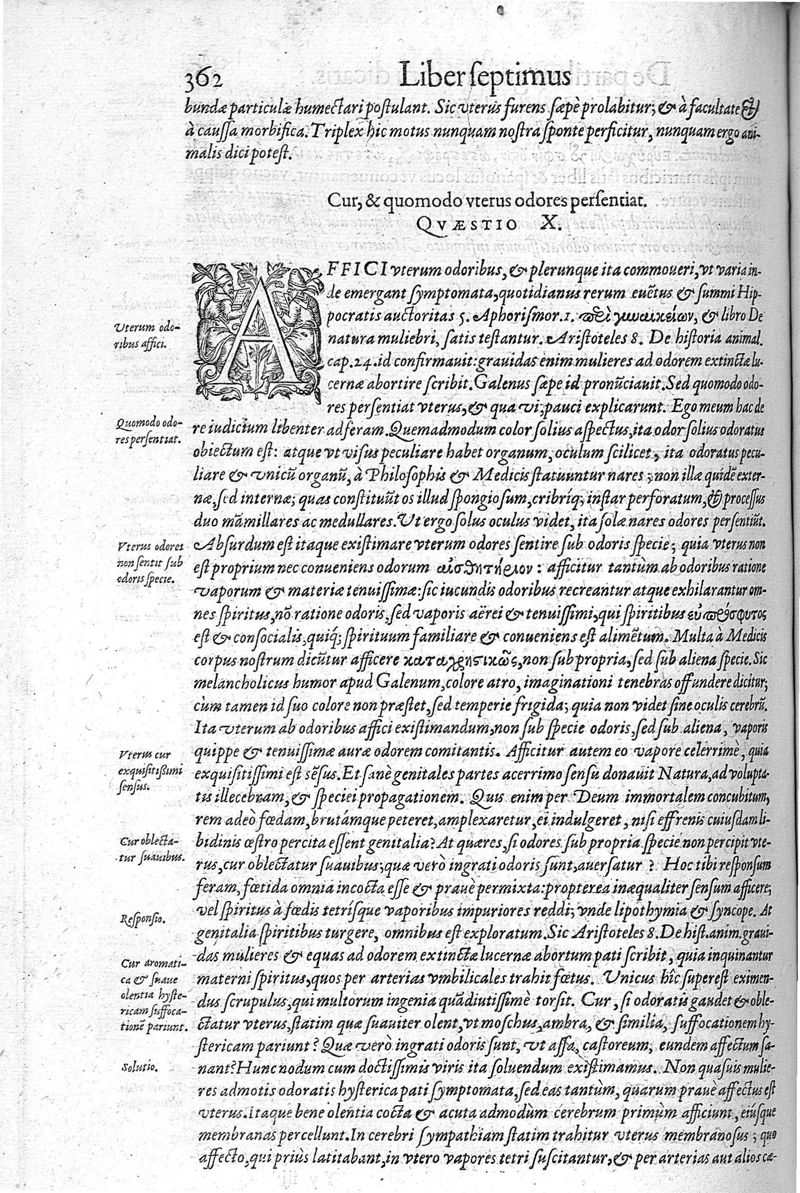 362 Liber septimus
bundæ particulæ humectari postulant. Sic vterus furens sæpe prolabitur; & à facultate &
à caussa morbifica. Triplex hic motus nunquam nostra sponte perficitur, nunquam ergo ani-
malis dici potest.
Cur, & quomodo vterus odores persentiat.
QVÆSTIO X.
AFFICI vterum odoribus, & plerunque ita commoueri, vt varia in-
de emergant symptomata, quotidianus rerum euẽtus & summi Hip-
pocratis auctoritas 5. Aphorismor. 1. περὶ γυναικείων, & libro De
Vterum odo-
ribus affici.
natura muliebri, satis testantur. Aristoteles 8. De historia animal.
cap. 24. id confirmauit: grauidas enim mulieres ad odorem extinctæ lu-
cernæ abortire scribit. Galenus sæpe id pronũciauit. Sed quomodo odo-
res persentiat vterus, & qua vi, pauci explicarunt. Ego meum hac de
Quomodo odo-
res persentiat.
re iudicium libenter adferam. Quemadmodum color solius aspectus, ita odor solius odoratus
obiectum est: atque vt visus peculiare habet organum, oculum scilicet, ita odoratus pecu-
liare & vnicũ organũ, à Philosophis & Medicis statuuntur nares; non illæ quidẽ exter-
næ, sed internæ; quas constituũt os illud spongiosum, cribriq; instar perforatum, & processus
duo mãmillares ac medullares. Vt ergo solus oculus videt, ita solæ nares odores persentiũt.
Vterus odores
non sentit sub
odoris specie.
Absurdum est itaque existimare vterum odores sentire sub odoris specie; quia vterus non
est proprium nec conueniens odorum αἰσθητήριον: afficitur tantum ab odoribus ratione
vaporum & materiæ tenuissimæ: sic iucundis odoribus recreantur atque exhilarantur om-
nes spiritus, nõ ratione odoris, sed vaporis aërei & tenuissimi, qui spiritibus εὐπρόσφυτος
est & consocialis, quiq; spirituum familiare & conueniens est alimẽtum. Multa à Medicis
corpus nostrum dicũtur afficere καταχρηστικῶς, non sub propria, sed sub aliena specie. Sic
melancholicus humor apud Galenum, colore atro, imaginationi tenebras offundere dicitur;
cùm tamen id suo colore non præstet, sed temperie frigida; quia non videt sine oculis cerebrũ.
Ita vterum ab odoribus affici existimandum, non sub specie odoris, sed sub aliena, vaporis
quippe & tenuissimæ auræ odorem comitantis. Afficitur autem eo vapore celerrimè, quia
Vterus cur
exquisitißimi
sensus.
exquisitissimi est sẽsus. Et sanè genitales partes acerrimo sensu donauit Natura, ad volupta-
tis illecebram, & speciei propagationem. Quis enim per Deum immortalem concubitum,
rem adeò fœdam, brutámque peteret, amplexaretur, ei indulgeret, nisi effrenis cuiusdam li-
bidinis œstro percita essent genitalia? At quæres, si odores sub propria specie non percipit vte-
Cur oblecta-
tur suauibus.
rus, cur oblectatur suauibus; quæ verò ingrati odoris sunt, auersatur? Hoc tibi responsum
feram, fœtida omnia incocta esse & prauè permixta: propterea inæqualiter sensum afficere;
Responsio.
vel spiritus à fœdis tetrísque vaporibus impuriores reddi; vnde lipothymia & syncope. At
genitalia spiritibus turgere, omnibus est exploratum. Sic Aristoteles 8. De hist. anim. graui-
das mulieres & equas ad odorem extinctæ lucernæ abortum pati scribit, quia inquinantur
Cur aromati-
ca & suaue
olentia hyste-
ricam suffoca-
tionẽ pariunt.
materni spiritus, quos per arterias vmbilicales trahit fœtus. Vnicus hîc superest eximen-
dus scrupulus, qui multorum ingenia quãdiutissimè torsit. Cur, si odoratis gaudet & oble-
ctatur vterus, statim quæ suauiter olent, vt moschus, ambra, & similia, suffocationem hy-
stericam pariunt? Quæ verò ingrati odoris sunt, vt assa, castoreum, eundem affectum sa-
Solutio.
nant? Hunc nodum cum doctissimis viris ita soluendum existimamus. Non quasuis mulie-
res admotis odoratis hysterica pati symptomata, sed eas tantùm, quarum prauè affectus est
vterus. Itaque bene olentia cocta & acuta admodùm cerebrum primùm afficiunt, eiúsque
membranas percellunt. In cerebri sympathiam statim trahitur vterus membranosus; quo
affecto, qui priùs latitabant, in vtero vapores tetri suscitantur, & per arterias aut alios cæ-